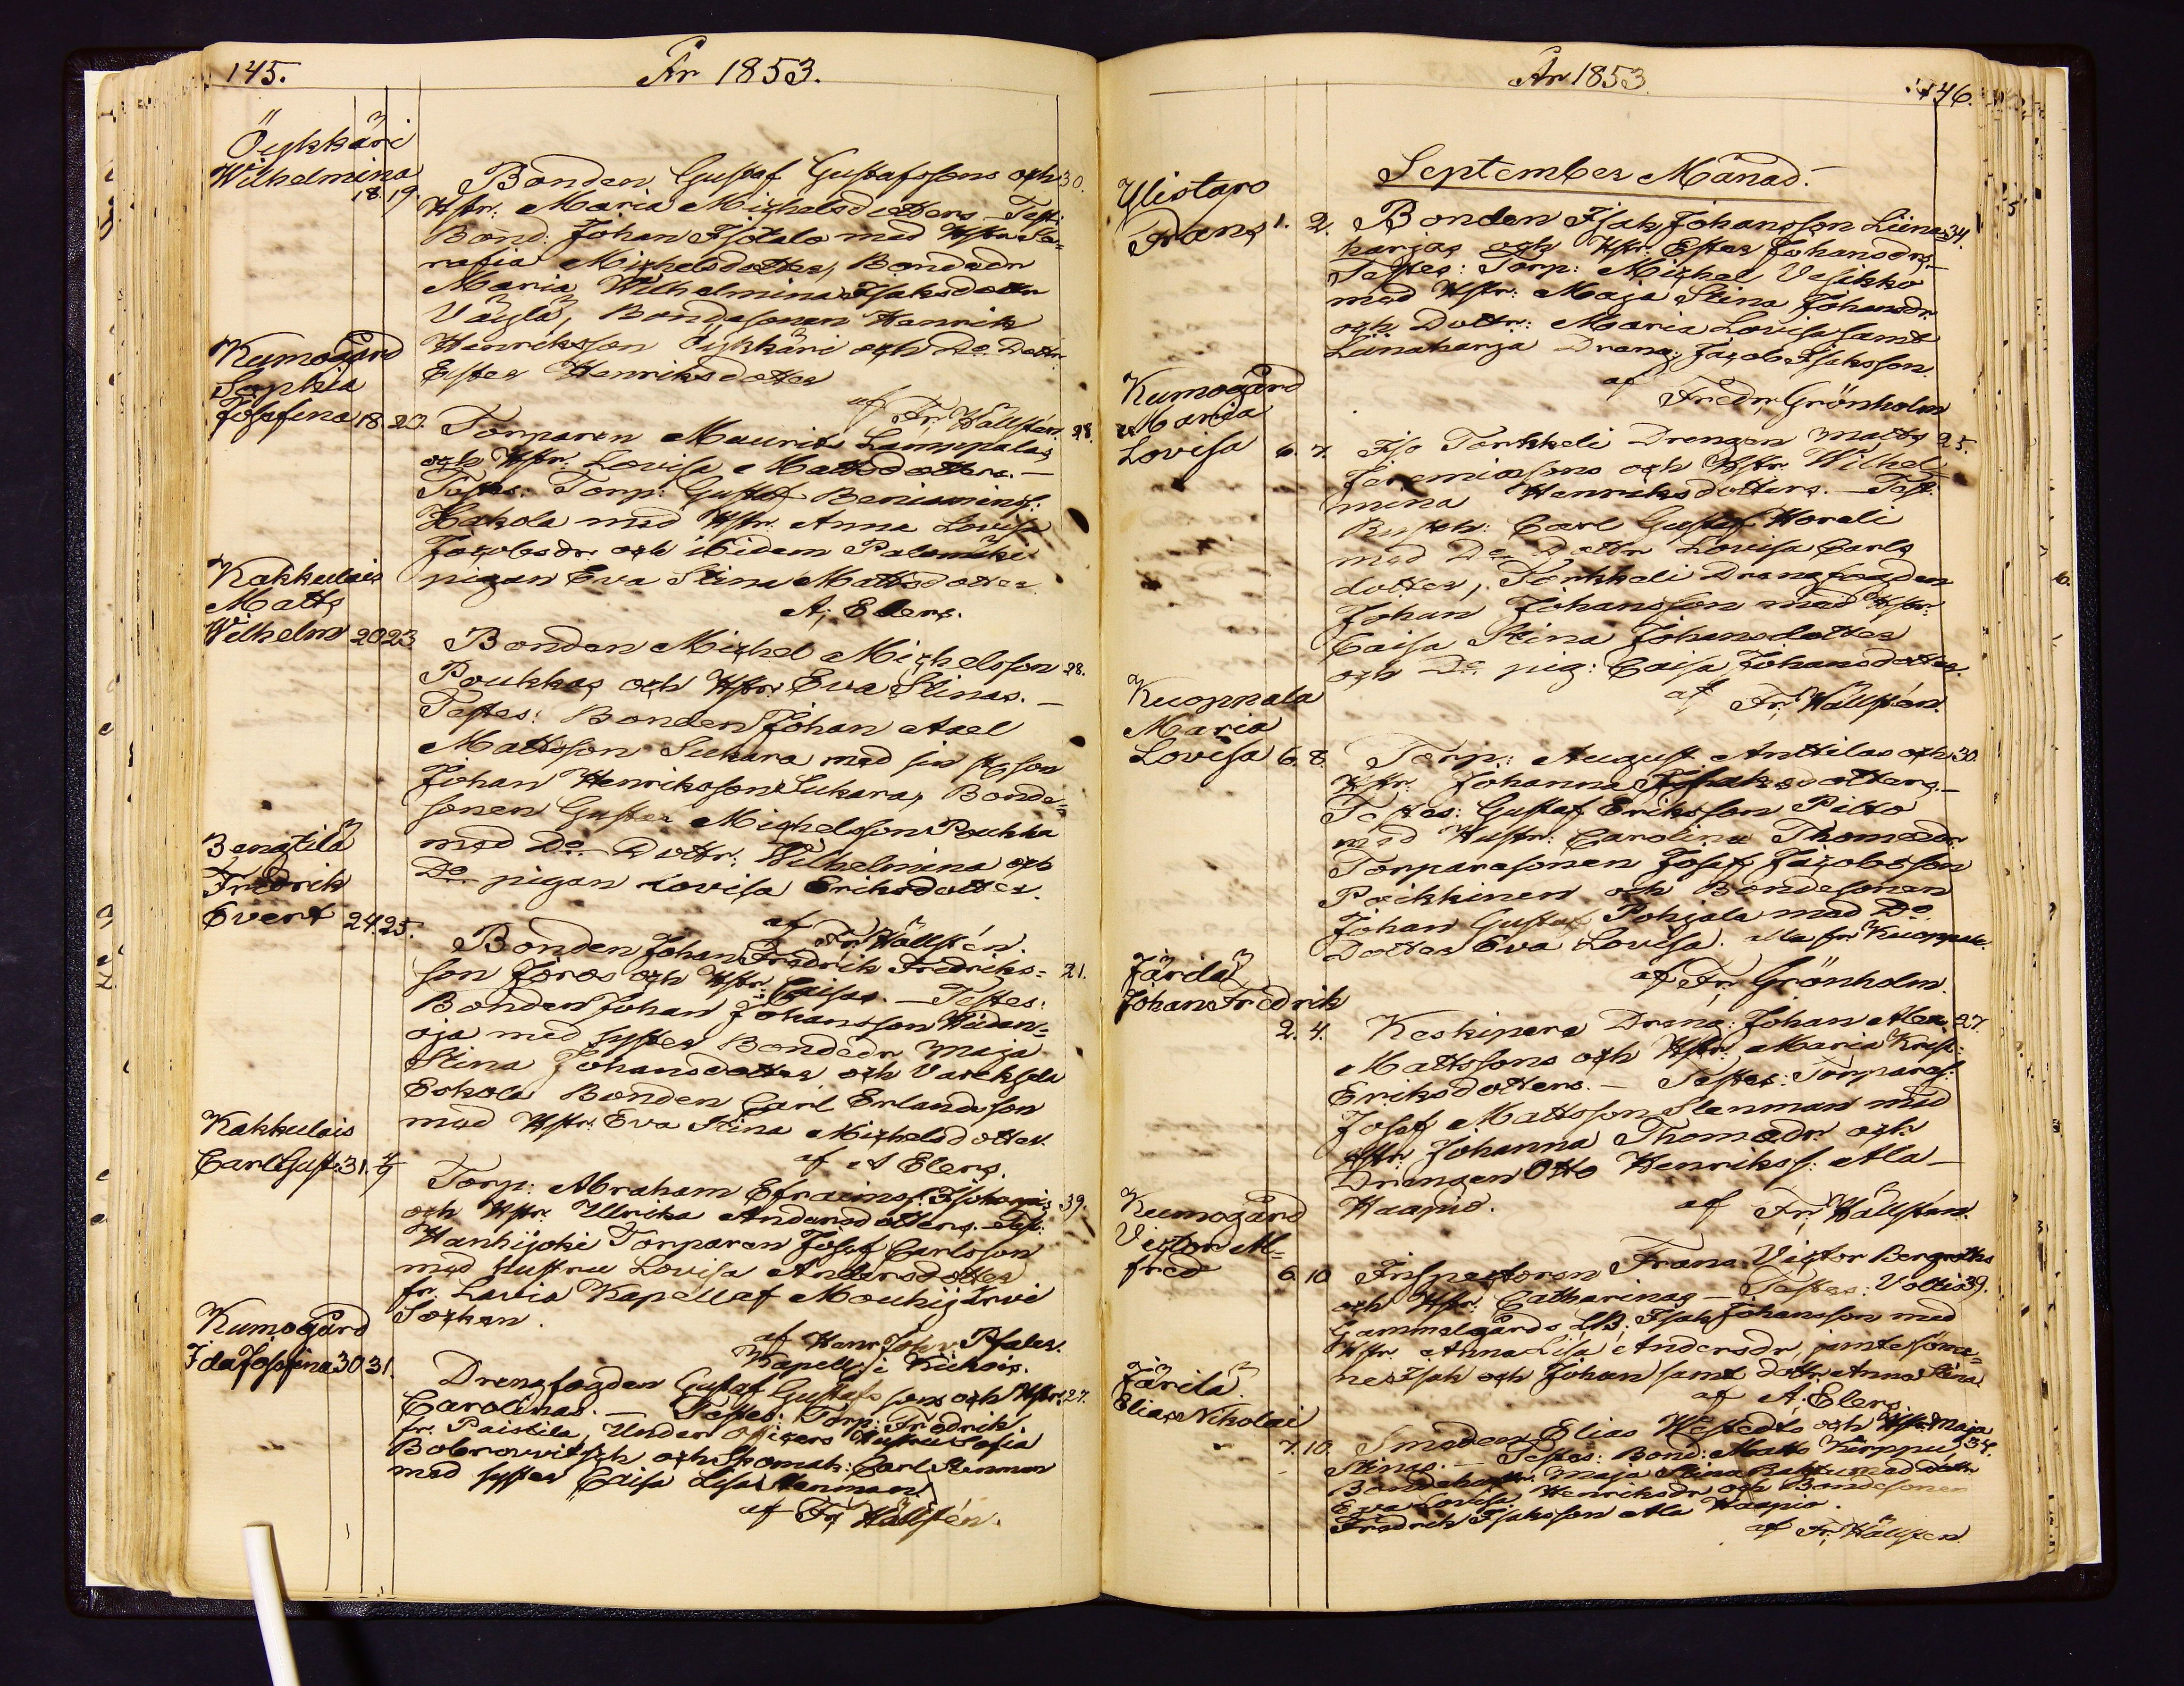 145.
År 1853.
Öykkäri
Wilhelmina
18. 19.
Bonden Gustaf Gustafssons och 30.
Hstr: Maria Michelsdotters Test:
Bond: Johan Isotalo med Hstr Se-
rafia Michelsdotter, Bondedr
Maria Wilhelmina Isaksdottr
Bondesonen Henrik
Henriksson Öykkäri och Do Dottr
Ester Henriksdotter
af Fr: Hällstén.
Kumogård
Sophia
Josefina 18. 20.
Torparen Maurits Lamppalas 28.
och Hstr. Lovisa Mattsdotters. —
Testes: Torp: Gustaf Beniamins:
Hakola med Hstr. Anna Lovisa
Jacobsdr. och ibidem Palomäki
pigan Eva Stina Mattsdotter
A, Elers.
Kakkulais
Matts
Wilhelm 20 23
Bonden Michel Michelsson 28.
Poukkas och Hstr: Eva Stinas. —
Testes: Bonden Johan Axel
Mattsson Sukara med sin styson
Johan Henriksson Sukara, Bonde=
sonen Gustaf Michelsson Poukka
med Do Dottr: Wilhelmina och
Do pigan Lovisa Eriksdotter.
af Fr Hällstén.
Bengtilä
Fredrik
Evert 24. 25.
Bonden Johan Fredrik Fredriks= 21.
son Joros och Hstr: Caisas. — Testes:
Bonden Johan Johansson Hiidan=
oja med syster Bondedr Maja
Stina Johansdotter och
Eskola Bonden Carl Erlandsson
med Hstr: Eva Stina Michelsdotter.
af A Elers.
Kakkulais
Carl Gust. 31. 4/9
Torp: Abraham Efraims: 39.
och Hstr. Ulrika Andersdotters. Test:
Hanhijoki Torparen Josef Carlsson
med hustru Lovisa Andersdotter
fr. Lavia Kapell af Mouhijärvi
Socken.
af Henr. Joh:
Kapell: i Kiikois.
Kumogård
Ida Josefina 30 31.
Drengfogden Gustaf Gustafssons och Hstr: 27.
Carolinas. — Testes: Torp: Fredrik
fr. Paistila, Under officers Hustru Sofia
Bobrowitsch och Skomak: Carl Stenman
med syster Caisa Lisa Stenman
af Fr, Hällstén.
År 1853.
146.
September Månad.
Ylistaro
Frans 1. 2.
Bonden Isak Johansson Liina 34.
harjas och Hstr: Ester Johansdrs —
Testes: Torp: Michel Vesikko
med Hstr: Maja Stina Johansdr.
och Dottr: Maria Lovisa samt
Liinaharja Dreng: Jacob Isaksson.
af
Fredr, Grönholm
Kumogård
Maria
Lovisa 6. 7.
Iso Terkkeli Drengen Matts 25.
Jeremiassons och Hstr. Wilhel-
mina Henriksdotters. — Test.
Carl Gustaf Horeli
med Do Dottr Lovisa Carls
dotter, Terkkeli Drengfogden
Johan Johansson med Hstr.
Caisa Stina Johansdotter
och Do pig: Caisa Johansdotter.
af Fr, Hällstén.
Kuoppala
Maria
Lovisa 6. 8.
Torp: August Anttilas och 30.
Hstr. Johanna Isaksdotters —
Testes: Gustaf Eriksson Pitto
med Hustr: Carolina Thomædr.
Torparesonen Josef Jacobsson
Poikkinen och Bondesonen
Johan Gustaf Pohjala med Do
Dotter Eva Lovisa. alla fr. Kuoppala.
af Fr, Grönholm.
Järilä
Johan Fredrik
2. 4.
Keskipere Dreng: Johan Alex. 27.
Mattssons och Hstr. Maria Krist:
Eriksdotters. — Testes: Torpares:
Josef Mattsson Stenman med
Hstr Johanna Thomædr. och
Drengen Otto Henrikss: Ala-
Haapio.
af Fr, Hällstén.
Kumogård
Victor Al=
fred 6. 10
Inspectoren Frans Victor Bergroths
och Hstr: Catharinas — Testes: Voltis 39.
Gammelgårds LB: Isak Johansson med
Hstr. Anna Lisa Andersdr, jemte söner=
ne Isak och Johan samt Dottr. Anna Stina.
af A, Elers.
Järilä.
Elias Nikolai
7. 10.
Smeden Elias Westedts och Hstr: Maja
Stinas. — Testes: Bond: Matts Kirppu, 34.
Bondehstr. Maja Stina med Dottr
Eva Lovisa Henriksdr och Bondesonen
Fredrik Isaksson Ala Haapio.
af Fr, Hällstén